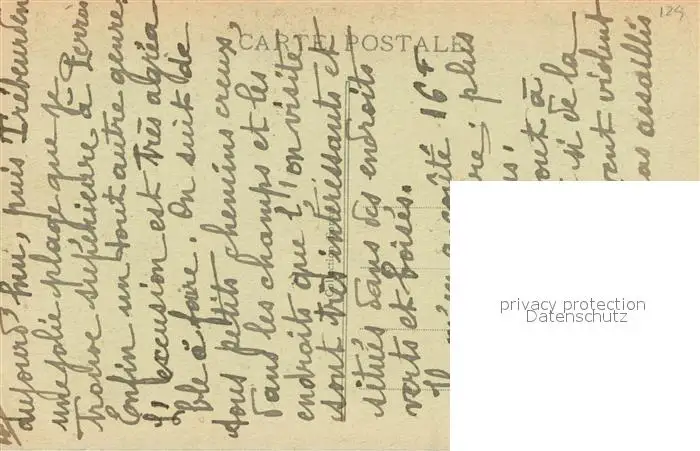 CARTE POSTALE
124
aujourd'hui, puis Trébeurden
une jolie plage que je
trouve supérieure à Perros
Enfin un tout autre genre
L'excusion est très agréa
ble à faire. On suit de
tous petits chemins creux,
dans les champs et les
endroits que l'on visite
sont très intéressants et
situés dans des endroits
verts et boisés.
coûté 16 F
plus
tout à
si de la
vident
assaillis
privacy protection
Datenschutz